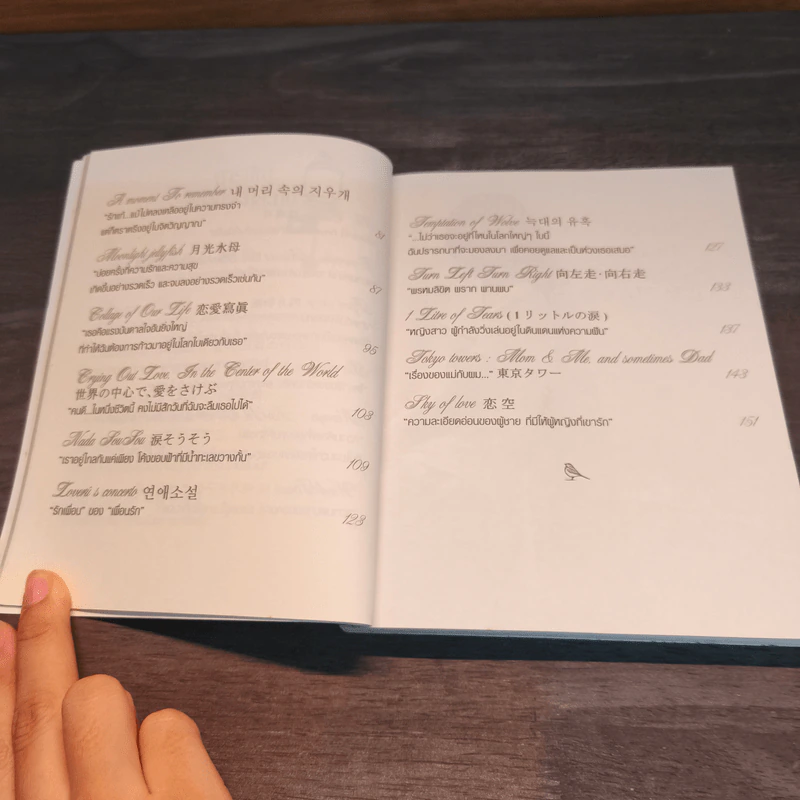 A moment To remember 내 머리 속의 지우개
"รักแท้...แม้ไม่หลงเหลืออยู่ในความทรงจำ
แต่ก็ตราตรึงอยู่ในจิตวิญญาณ"
81
Moonlight jellyfish 月光水母
"บ่อยครั้งที่ความรักและความสุข
เกิดขึ้นอย่างรวดเร็ว และจบลงอย่างรวดเร็วเช่นกัน"
87
Collage of Our Life 恋愛寫眞
"เธอคือแรงบันดาลใจอันยิ่งใหญ่
ที่ทำให้ฉันต้องการก้าวมาอยู่ในโลกใบเดียวกับเธอ"
95
Crying Out Love, In the Center of the World
世界の中心で、愛をさけぶ
"คนดี...ในหนึ่งชีวิตนี้ คงไม่มีสักวันที่ฉันจะลืมเธอไปได้"
103
Nada SouSou 涙そうそう
"เราอยู่ไกลกันแค่เพียง โค้งขอบฟ้าที่มีน้ำทะเลขวางกั้น"
109
Lover's concerto 연애소설
"รักเพื่อน" ของ "เพื่อนรัก"
123
Temptation of Wolve 늑대의 유혹
"...ไม่ว่าเธอจะอยู่ที่ไหนในโลกใหญ่ๆ ใบนี้
ฉันปรารถนาที่จะมองลงมา เพื่อคอยดูแลและเป็นห่วงเธอเสมอ"
127
Turn Left Turn Right 向左走·向右走
"พรหมลิขิต พราก พานพบ"
133
1 Litre of Tears (1リットルの涙)
"หญิงสาว ผู้กำลังวิ่งเล่นอยู่ในดินแดนแห่งความฝัน"
137
Tokyo towers : Mom & Me, and sometimes Dad
"เรื่องของแม่กับผม..." 東京タワー
143
Sky of love 恋空
"ความละเอียดอ่อนของผู้ชาย ที่มีให้ผู้หญิงที่เขารัก"
151